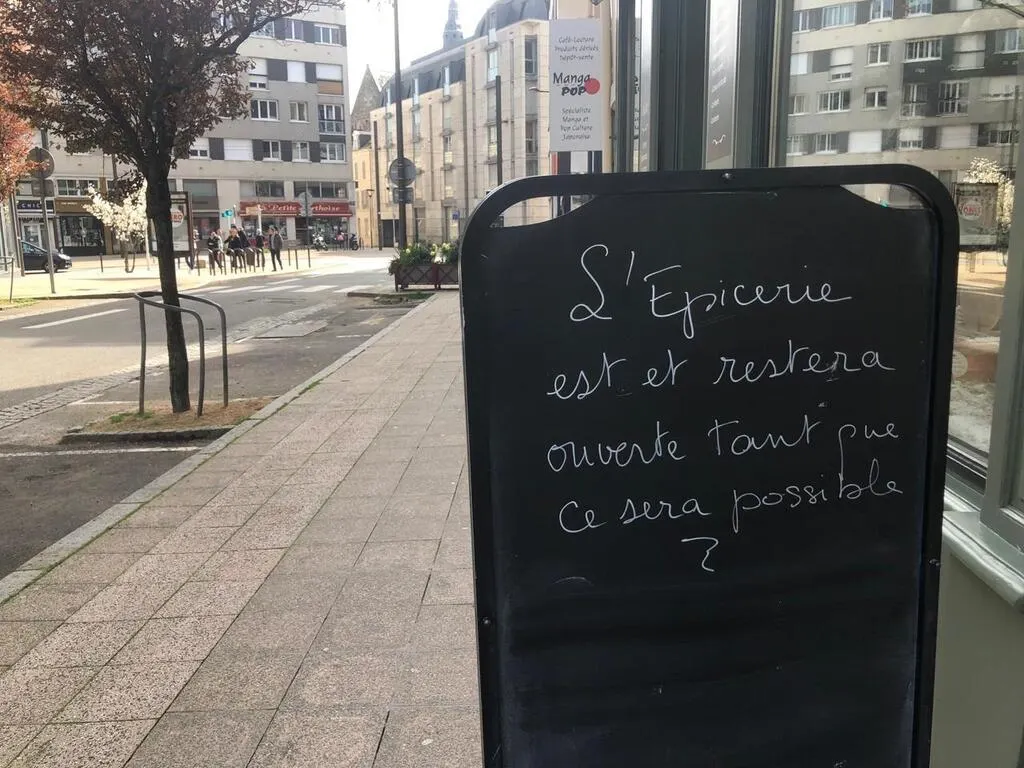 Café-Lecture
Produits dérivés
Dépôt-vente
Manga
POP
Spécialiste
Manga et
Pop Culture
Japonaise
L'Epicerie
est et restera
ouverte tant que
ce sera possible